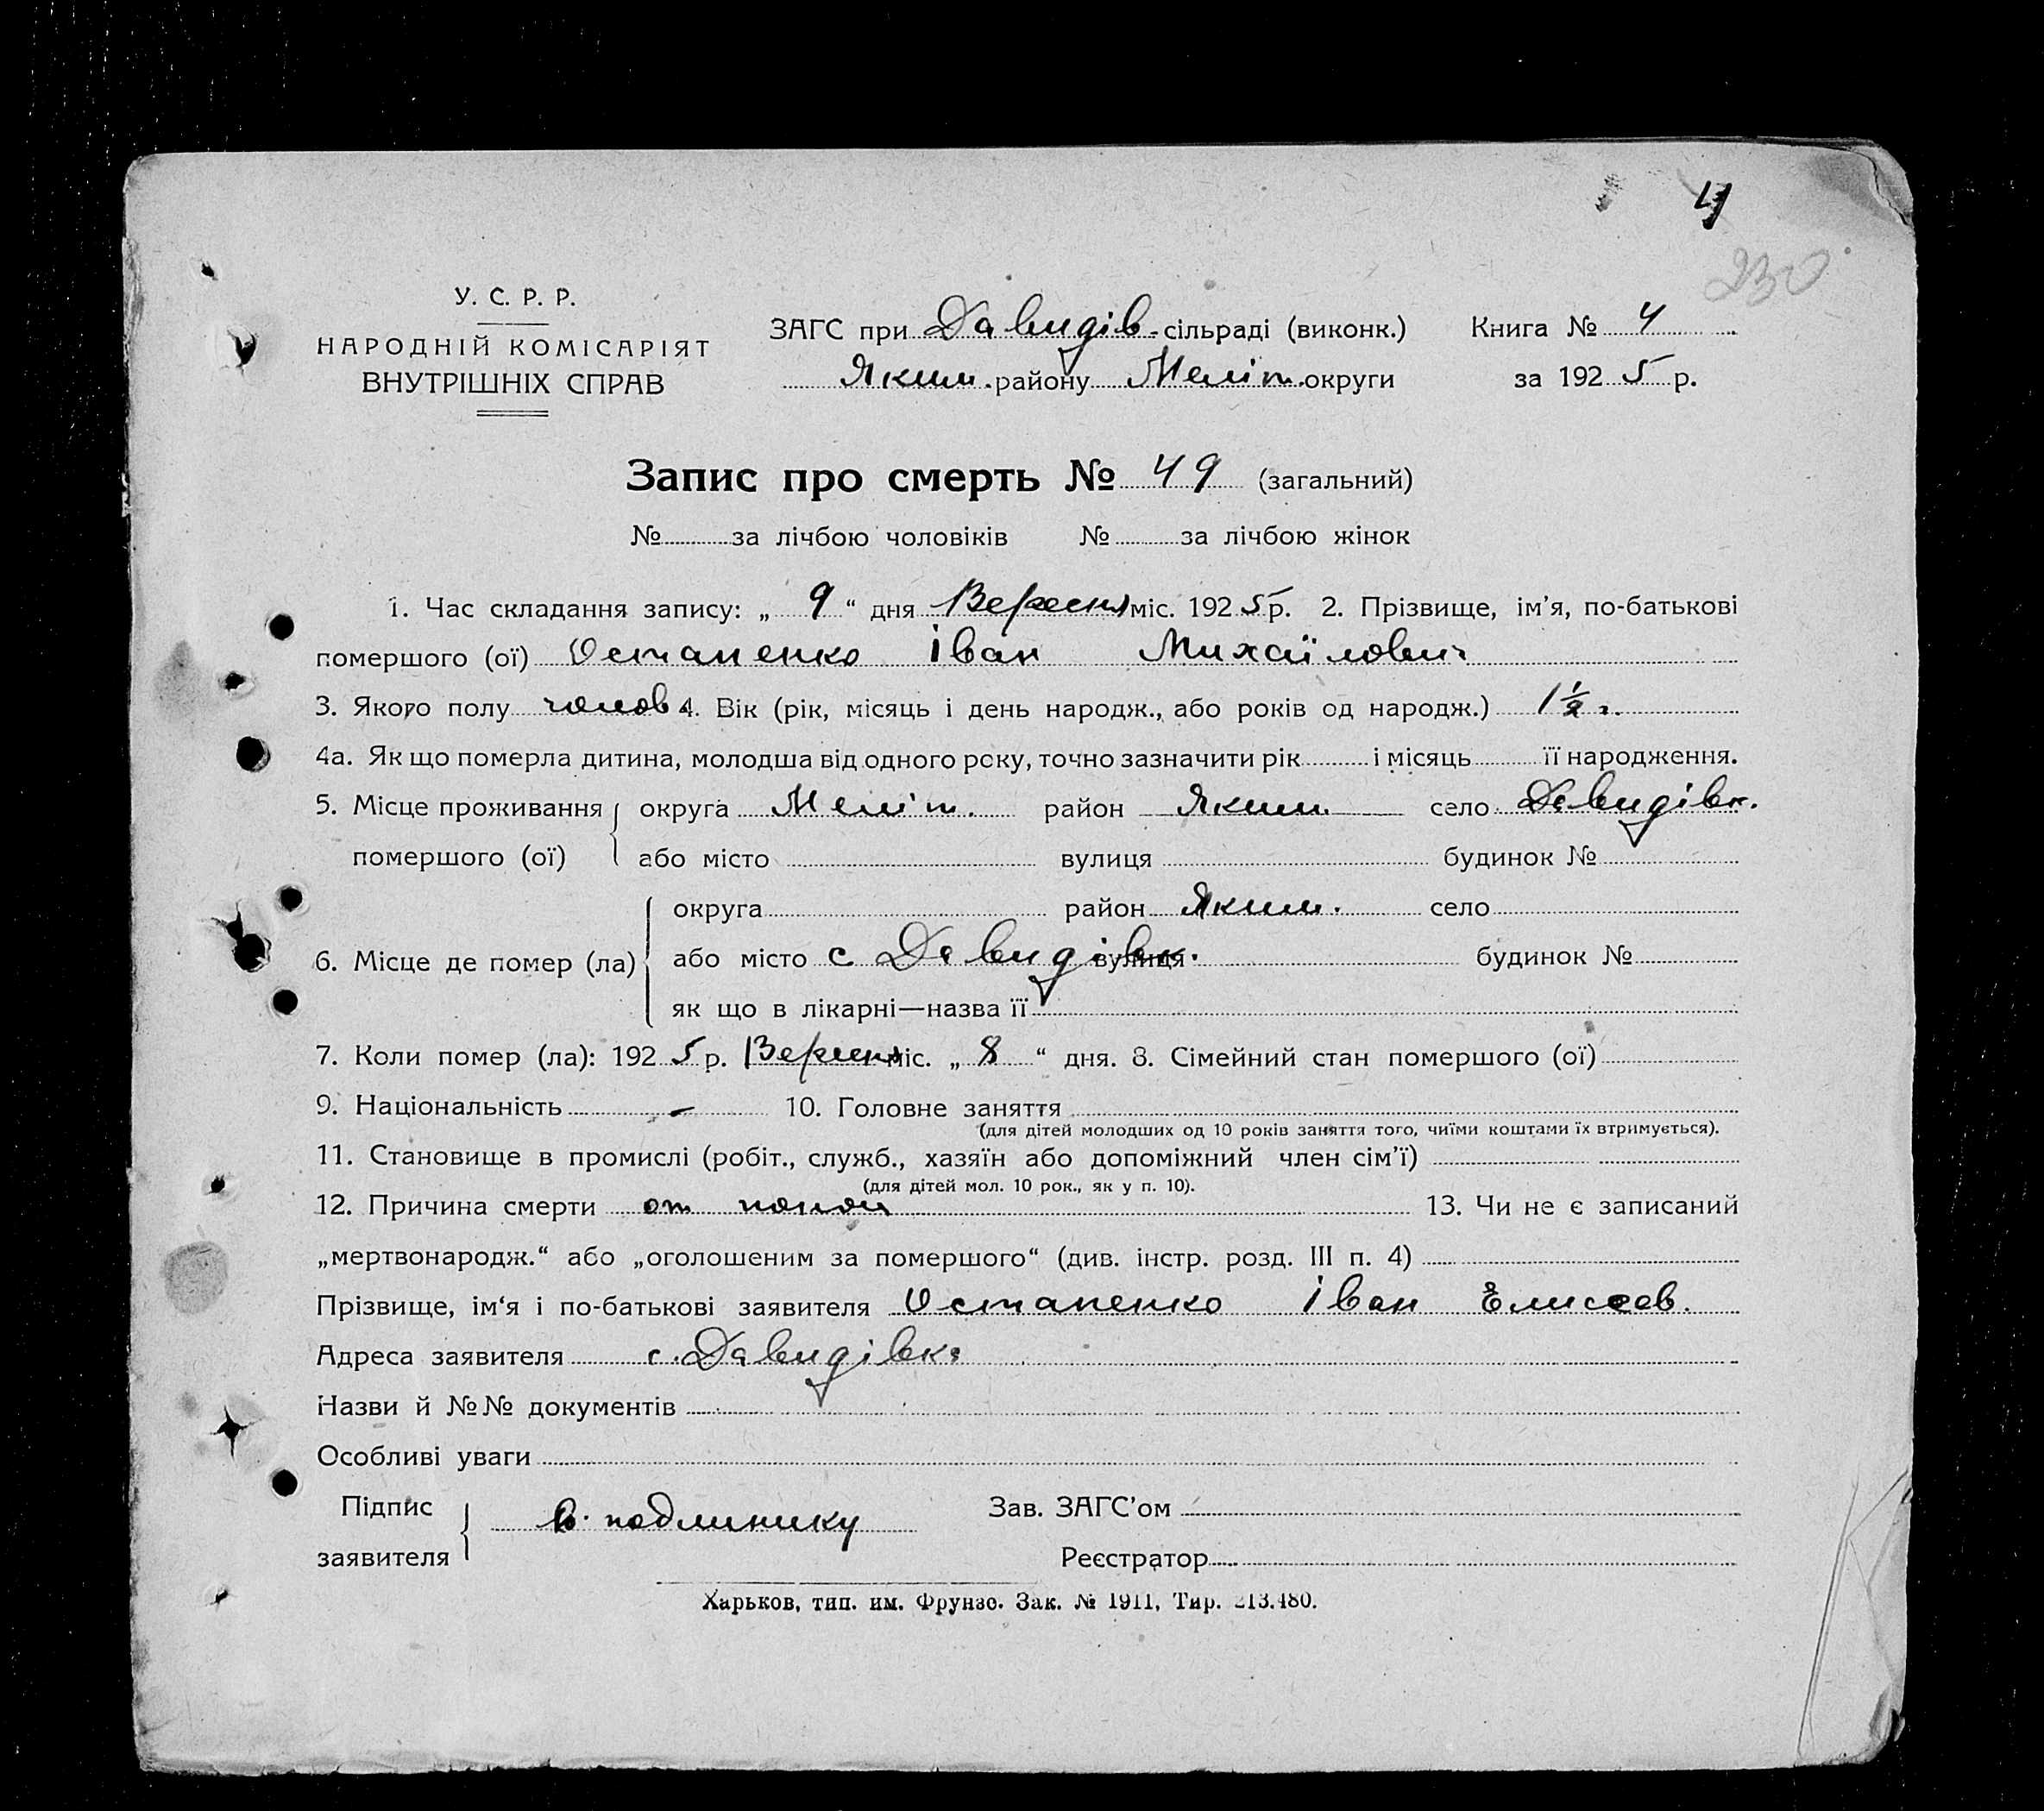 4
230
У. С. Р. Р.
НАРОДНІЙ КОМІСАРІЯТ
ВНУТРІШНІХ СПРАВ
ЗАГС при Давидів. сільраді (виконк.) Книга № 4
Яким. району Меліт. округи за 1925 р.
Запис про смерть № 49 (загальний)
№ за лічбою чоловіків № за лічбою жінок
1. Час складання запису: „ 9 “ дня Вересня міс. 1925 р. 2. Прізвище, ім’я, по-батькові
помершого (ої) Остапенко Іван Михаїлович
3. Якого полу чолов. 4. Вік (рік, місяць і день народж., або років од народж.) 1½ г.
4а. Як що померла дитина, молодша від одного року, точно зазначити рік і місяць її народження.
5. Місце проживання округа Меліт. район Яким. село Давидівк.
помершого (ої) або місто вулиця будинок №
округа район Яким. село
6. Місце де помер (ла) або місто с Давидівк. вулиця будинок №
як що в лікарні—назва її
7. Коли помер (ла): 1925 р. Вересня міс. „ 8 “ дня. 8. Сімейний стан помершого (ої)
9. Національність - 10. Головне заняття
(для дітей молодших од 10 років заняття того, чиїми коштами їх втримується).
11. Становище в промислі (робіт., служб., хазяїн або допоміжний член сім’ї)
(для дітей мол. 10 рок., як у п. 10).
12. Причина смерти от 13. Чи не є записаний
„мертвонародж.“ або „оголошеним за помершого“ (див. інстр. розд. III п. 4)
Прізвище, ім‘я і по-батькові заявителя Остапенко Іван Елисеев.
Адреса заявителя с. Давидівка
Назви й №№ документів
Особливі уваги
Підпис в. подлинику Зав. ЗАГС’ом
заявителя Реєстратор
Харьков, тип. им. Фрунзе. Зак. № 1911, Тир. 213.480.